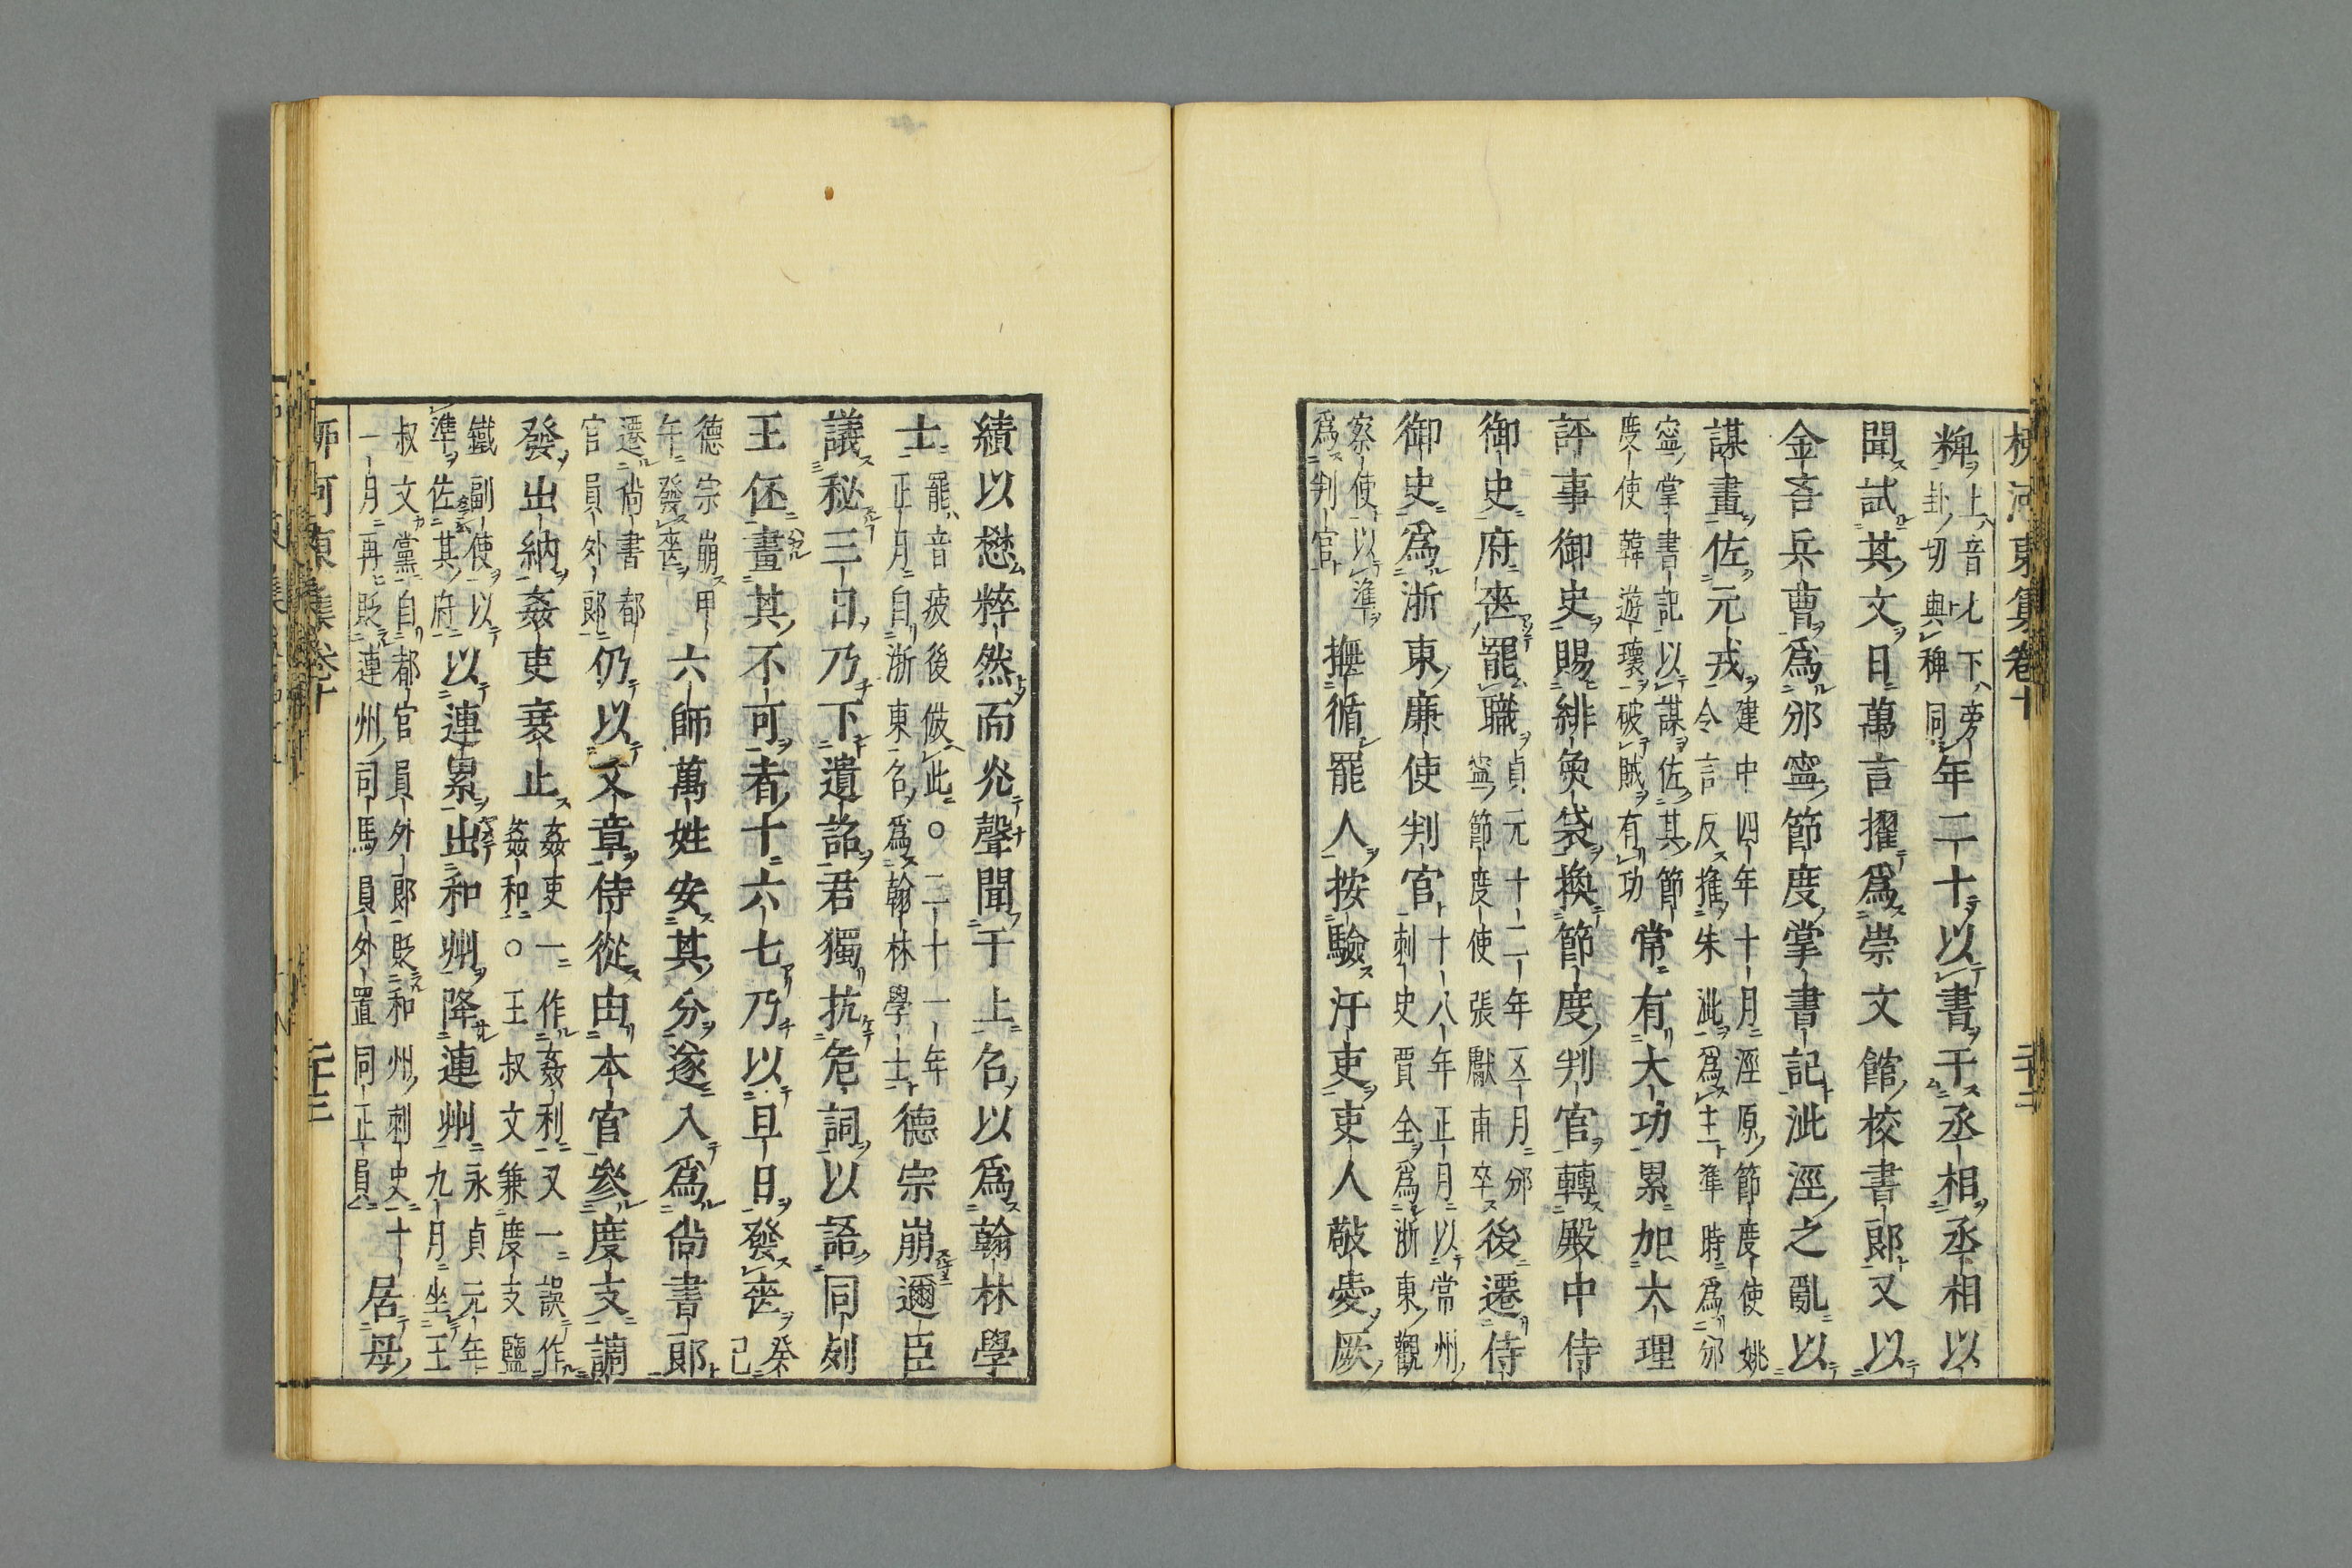 柳河東集卷十
二十二
粺上音乜下旁卦切與稗同年二十以書干丞相丞相以
聞試其文日萬言擢爲崇文館校書郎又以
金吾兵曹爲邠寧節度掌書記泚涇之亂以
謀畫佐元戎建中四年十月涇原節度使姚令言反推朱泚爲主準時爲邠
寧掌書記以謀佐其節度使韓遊瓌破賊有功常有大功累加大理
評事御史賜緋魚袋換節度判官轉殿中侍
御史府喪罷職貞元十二年五月邠寧節度使張獻甫卒後遷侍
御史爲浙東廉使判官十八年正月以常州刺史賈全爲浙東觀
察使以準爲判官撫循罷人按驗汙吏吏人敬愛厥
績以懋粹然而光聲聞于上召以爲翰林學
士罷音疲後倣此○二十一年正月自浙東召爲翰林學士德宗崩邇臣
議秘三日乃下遺詔君獨抗危詞以語同列
王伾畫其不可者十六七乃以旦日發喪癸巳
德宗崩甲午發喪六師萬姓安其分遂入爲尚書郎
遷尚書都官員外郎仍以文章侍從由本官參度支調
發出納姦吏衰止姦吏一作姦利又一誤作姦和○王叔文兼度支鹽
鐵副使以準佐其府以連累出和州降連州永貞元年九月坐王
叔文黨自都官員外郎貶和州刺史十一月再貶連州司馬員外置同正員居母
柳河東集卷十
二十三